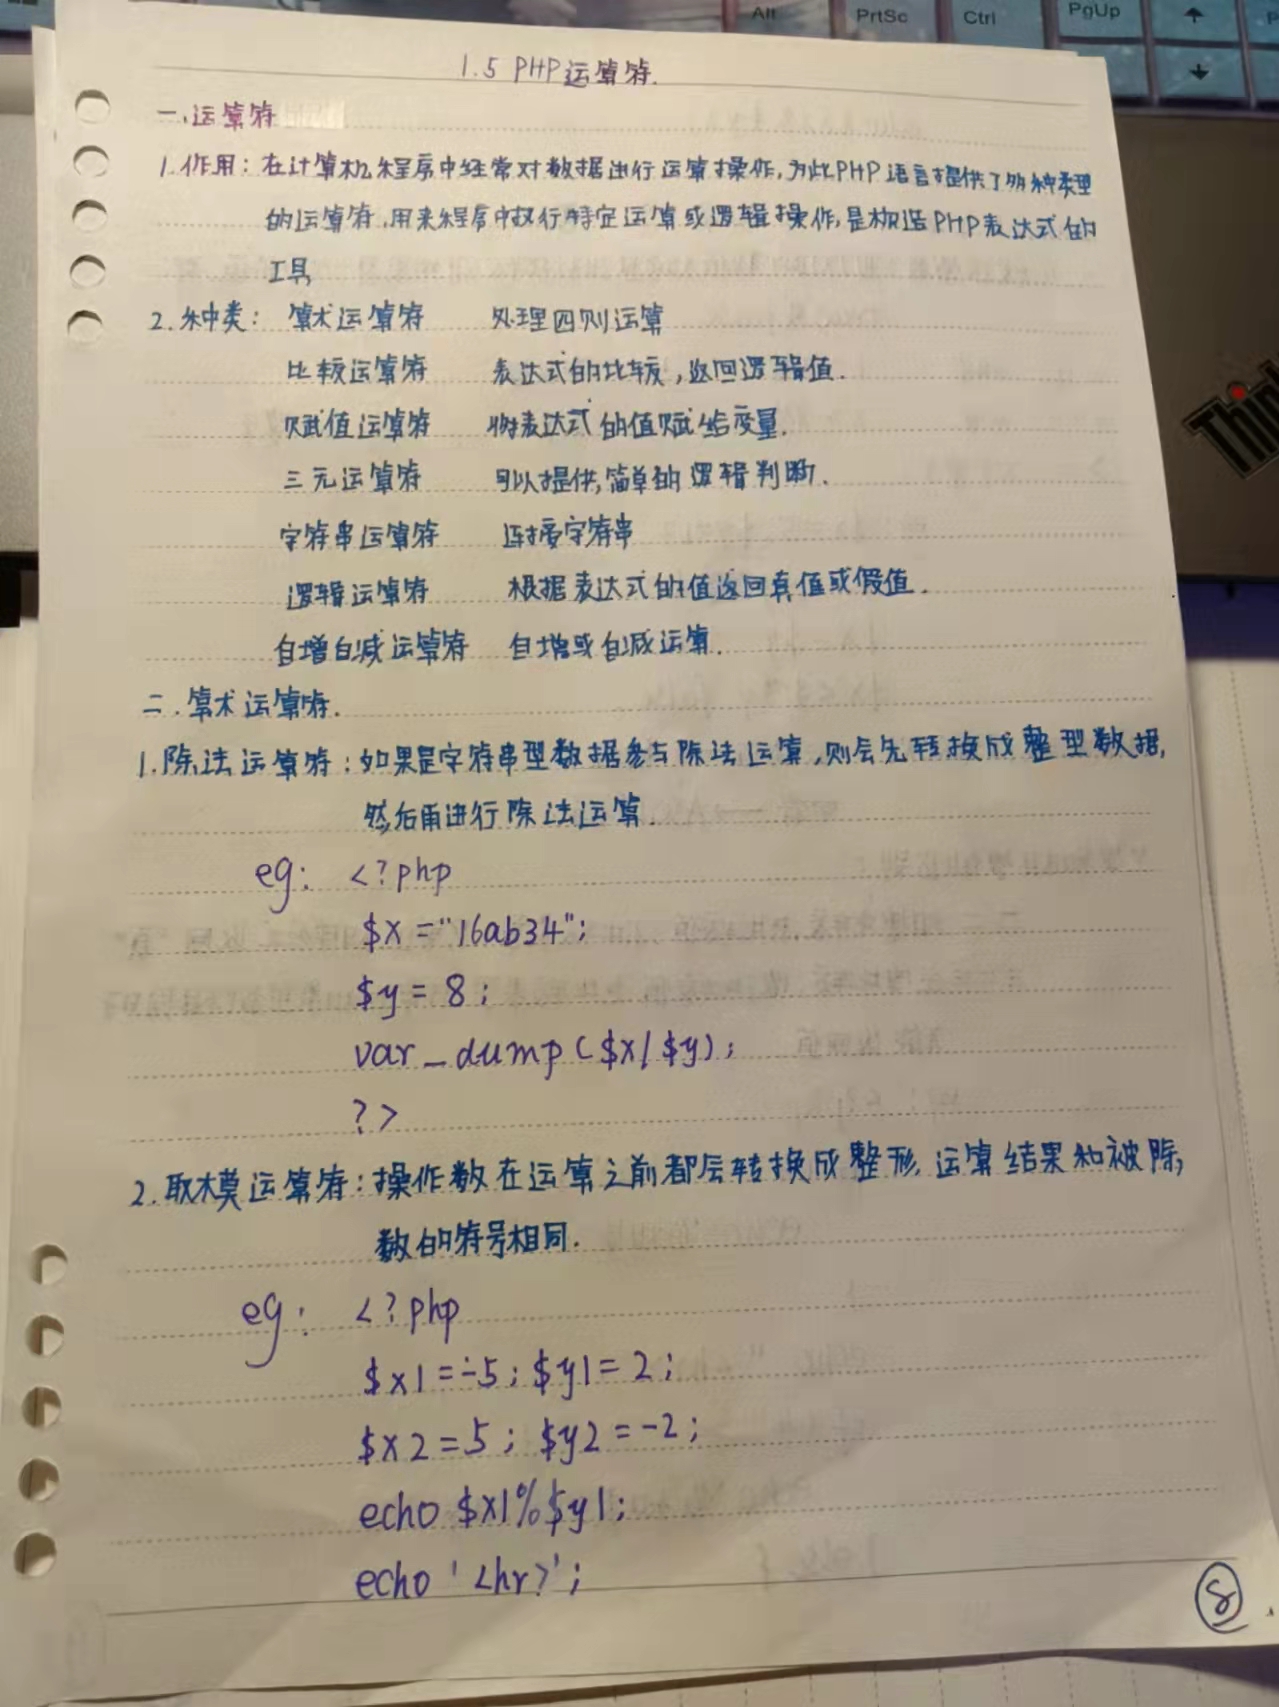 Alt PrtSc Ctrl PgUp
1.5 PHP运算符.
一.运算符
1.作用：在计算机程序中经常对数据进行运算操作,为此PHP语言提供了多种类型
的运算符,用来程序中执行特定运算或逻辑操作,是构造PHP表达式的
工具
2.种类： 算术运算符 处理四则运算
比较运算符 表达式的比较,返回逻辑值.
赋值运算符 将表达式的值赋给变量.
三元运算符 可以提供,简单的逻辑判断.
字符串运算符 连接字符串
逻辑运算符 根据表达式的值返回真值或假值.
自增自减运算符 自增或自减运算.
二.算术运算符.
1.除法运算符：如果是字符串型数据参与除法运算,则会先转换成整型数据,
然后再进行除法运算.
eg: <?php
$x="16ab34";
$y=8;
var_dump($x/$y);
?>
2.取模运算符：操作数在运算之前都会转换成整形,运算结果和被除,
数的符号相同.
eg: <?php
$x1=-5;$y1=2;
$x2=5;$y2=-2;
echo $x1%$y1;
echo '<hr>';
8
Thin